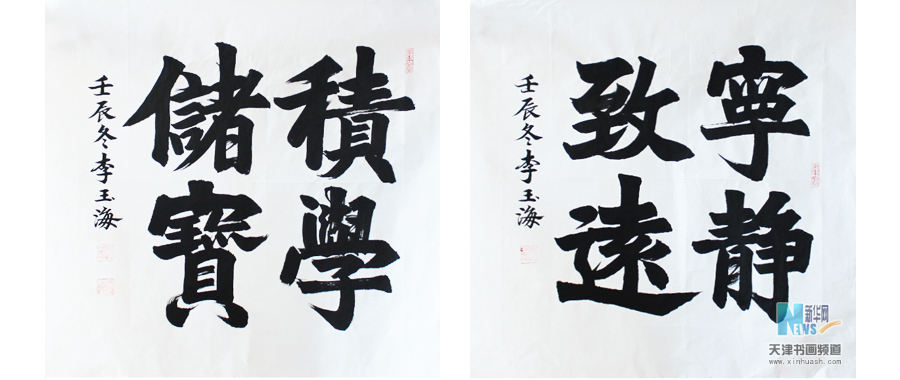 積學
儲寶
壬辰冬李玉海
寧静
致遠
壬辰冬李玉海
新华网
NEWS
天津书画频道
www.xinhuash.com